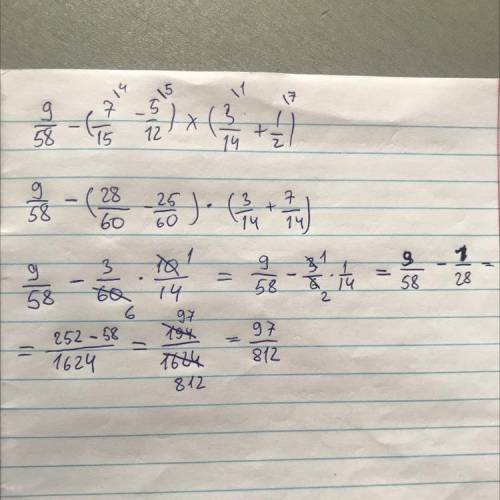 9/58 − (7/15 \4 − 5/12 \5) × (3/14 \1 + 1/2 \7)
9/58 − (28/60 − 25/60) · (3/14 + 7/14)
9/58 − 3/60 6 · 10/14 1 = 9/58 − 3/6 1 2 · 1/14 = 9/58 − 1/28 =
= 252 − 58/1624 = 194/1624 97 812 = 97/812